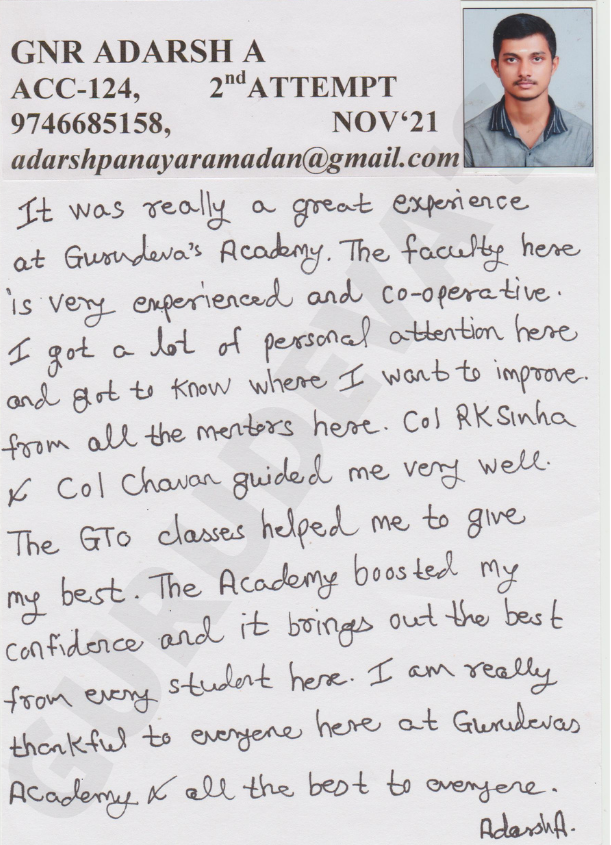 GNR ADARSH A
ACC-124, 2nd ATTEMPT
9746685158, NOV‘21
adarshpanayaramadan@gmail.com
It was really a great experience
at Gurudeva's Academy. The faculty here
is very experienced and co-operative.
I got a lot of personal attention here
and got to know where I want to improve.
from all the mentors here. Col RK Sinha
& Col Chavan guided me very well.
The GTO classes helped me to give
my best. The Academy boosted my
confidence and it brings out the best
from every student here. I am really
thankful to everyone here at Gurudevas
Academy & all the best to everyone.
Adarsh A.
GURUDEVA'S